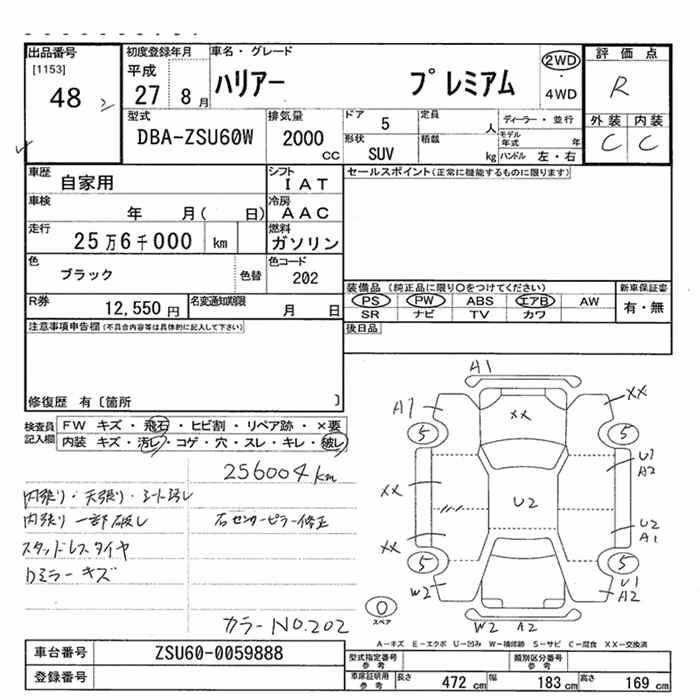 出品番号 初度登録年月 車名・グレード 2WD 評価点
[1153] 平成 ハリアー プレミアム ・ R
48 27 8月 4WD
型式 排気量 ドア 5 定員 人 ディーラー・並行 外装 内装
DBA-ZSU60W 2000 CC 形状 SUV 積載 kg モデル年式 年 C C
ハンドル 左・右
車歴 自家用 シフト IAT セールスポイント(正常に機能するものに限ります)
車検 年 月( 日) 冷房 AAC
走行 25万6千000 km 燃料 ガソリン
色 ブラック 色替 色コード 202
装備品 (純正品に限り○をつけてください) 新車保証書
R券 12,550円 名変通知期限 月 日 PS PW ABS エアB AW 有・無
SR ナビ TV カワ
注意事項申告欄(不具合内容等は具体的に記入して下さい) 後日品
修復歴 有〔箇所 〕
検査員記入欄 FW キズ・飛石・ヒビ割・リペア跡・×要
内装 キズ・汚レ・コゲ・穴・スレ・キレ・破レ
256004km
内張り・天張り・シート汚レ
内張り一部破レ 右センターピラー修正
スタッドレスタイヤ
Dミラーキズ
カラーNO.202
A1
A1 XX XX
5 5
U1
A2
XX U2
U2
A1
XX
5 5
W2 U1
A2
0 スペア
W2 A2
A-キズ E-エクボ U-凹み W-補修跡 S-サビ C-腐食 XX-交換済
車台番号 ZSU60-0059888 型式指定番号 参考 類別区分番号 参考
登録番号 車庫証明用参考 長さ 472cm 幅 183cm 高さ 169cm